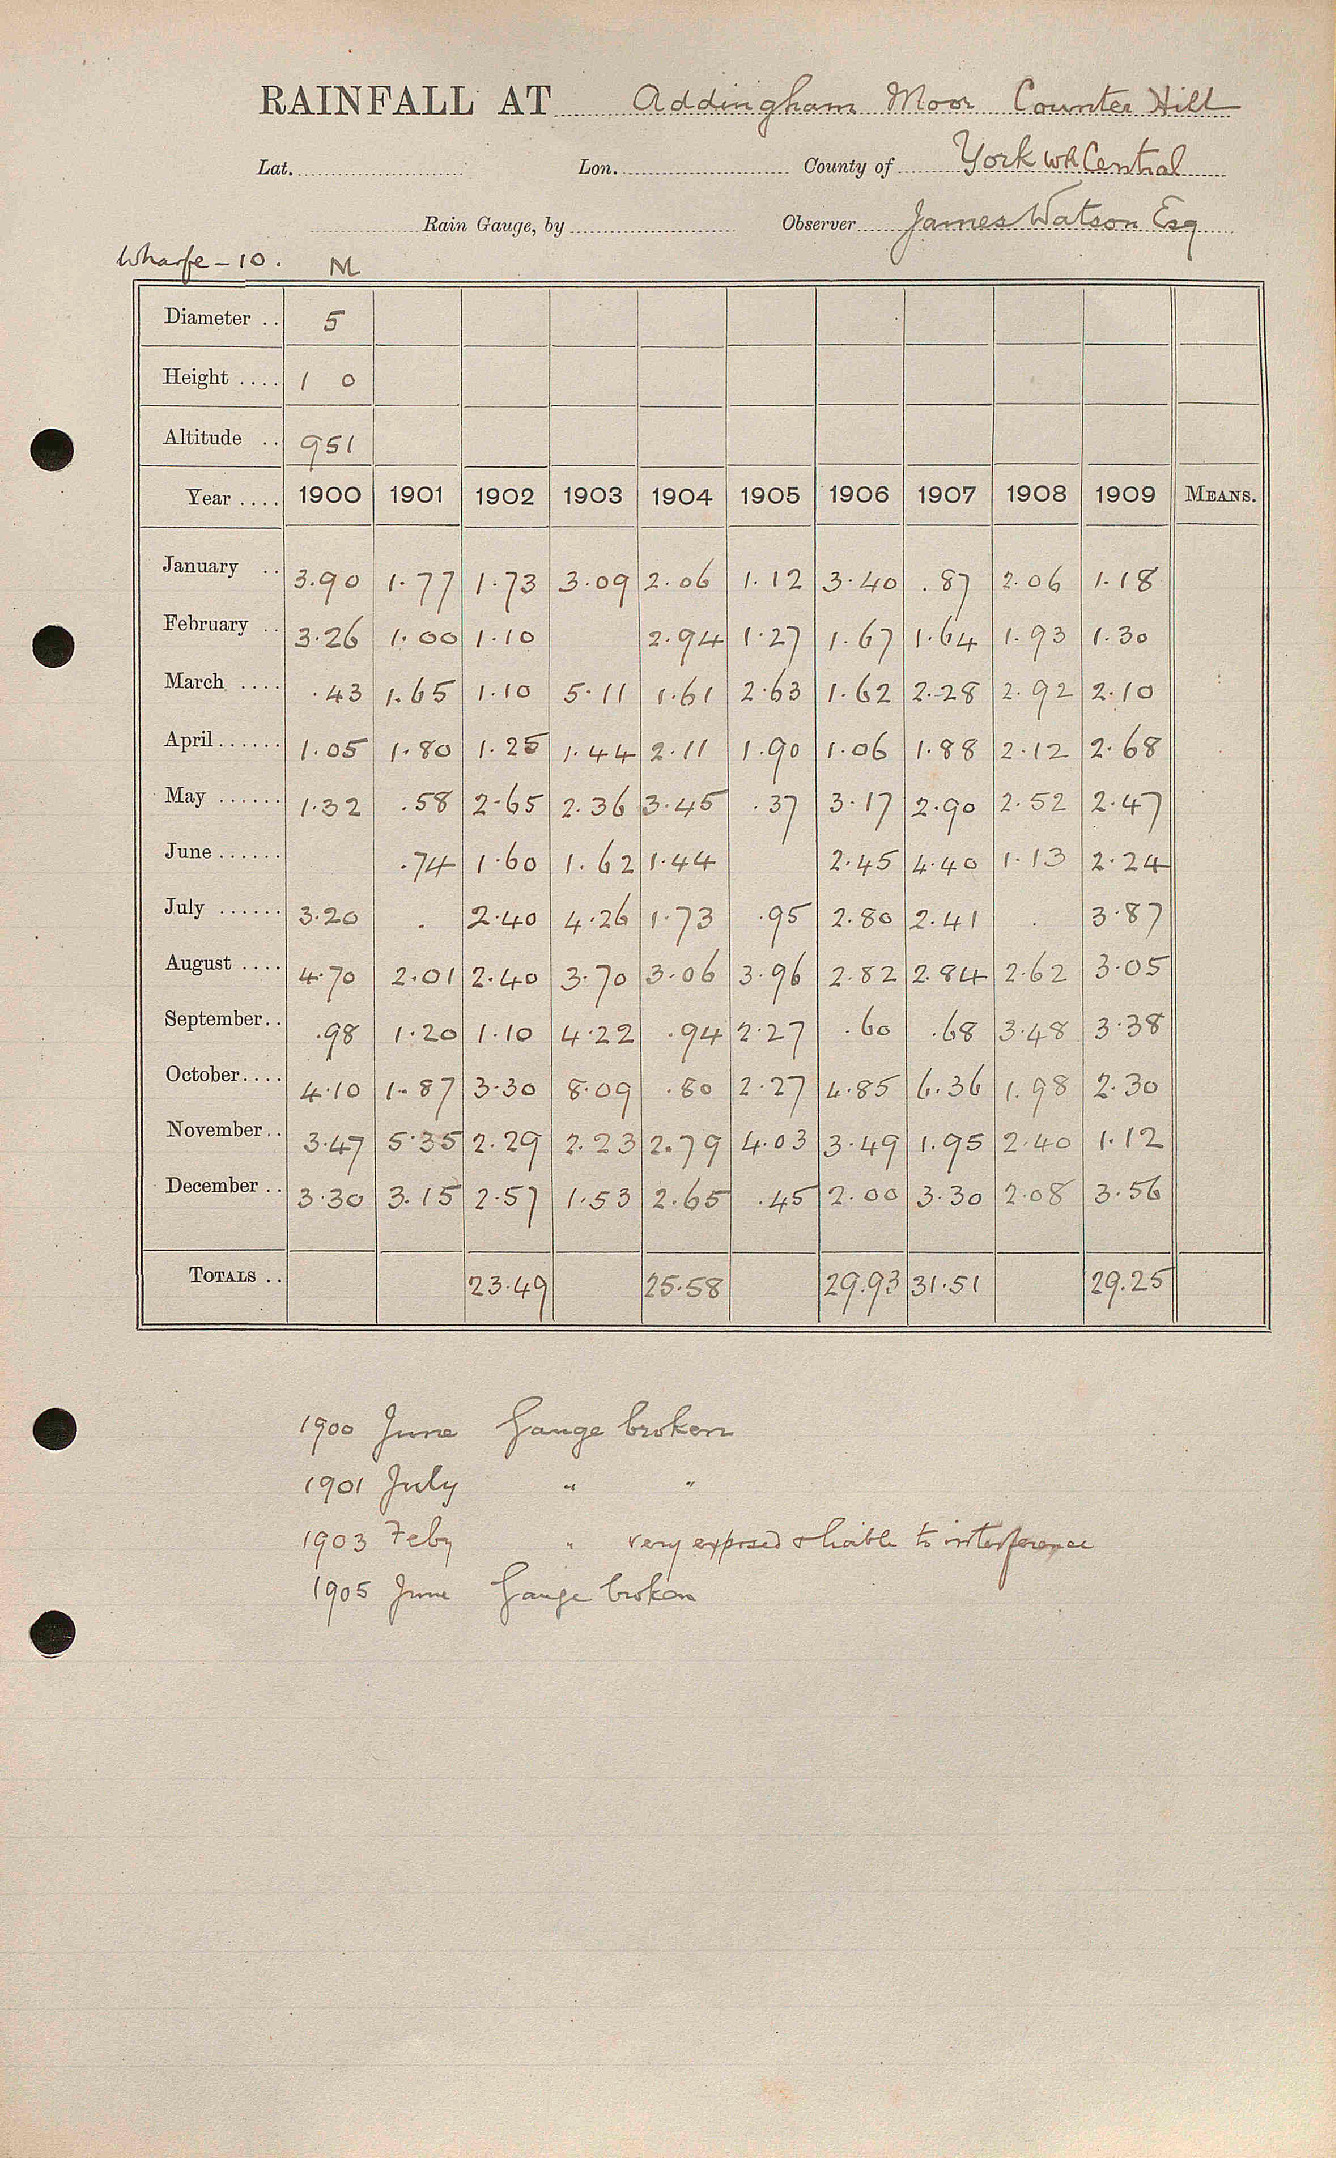 RAINFALL AT Addingham Moor Counter Hill
Lat. Lon. County of York WR Central
Rain Gauge, by Observer James Watson Esq
Wharfe - 10. M
Diameter .. 5
Height .... 1 0
Altitude .. 951
Year .... 1900 1901 1902 1903 1904 1905 1906 1907 1908 1909 MEANS.
January .. 3.90 1.77 1.73 3.09 2.06 1.12 3.40 .87 2.06 1.18
February .. 3.26 1.00 1.10 2.94 1.27 1.67 1.64 1.93 1.30
March .... .43 1.65 1.10 5.11 1.61 2.63 1.62 2.28 2.92 2.10
April ...... 1.05 1.80 1.25 1.44 2.11 1.90 1.06 1.88 2.12 2.68
May ...... 1.32 .58 2.65 2.36 3.45 .37 3.17 2.90 2.52 2.47
June ...... .74 1.60 1.62 1.44 2.45 4.40 1.13 2.24
July ...... 3.20 . 2.40 4.26 1.73 .95 2.80 2.41 . 3.87
August .... 4.70 2.01 2.40 3.70 3.06 3.96 2.82 2.84 2.62 3.05
September .. .98 1.20 1.10 4.22 .94 2.27 .60 .68 3.48 3.38
October .... 4.10 1.87 3.30 8.09 .80 2.27 4.85 6.36 1.98 2.30
November .. 3.47 5.35 2.29 2.23 2.79 4.03 3.49 1.95 2.40 1.12
December .. 3.30 3.15 2.57 1.53 2.65 .45 2.00 3.30 2.08 3.56
TOTALS .. 23.49 25.58 29.93 31.51 29.25
1900 June Gauge broken
1901 July " "
1903 Feby " very exposed & liable to interference
1905 June Gauge broken